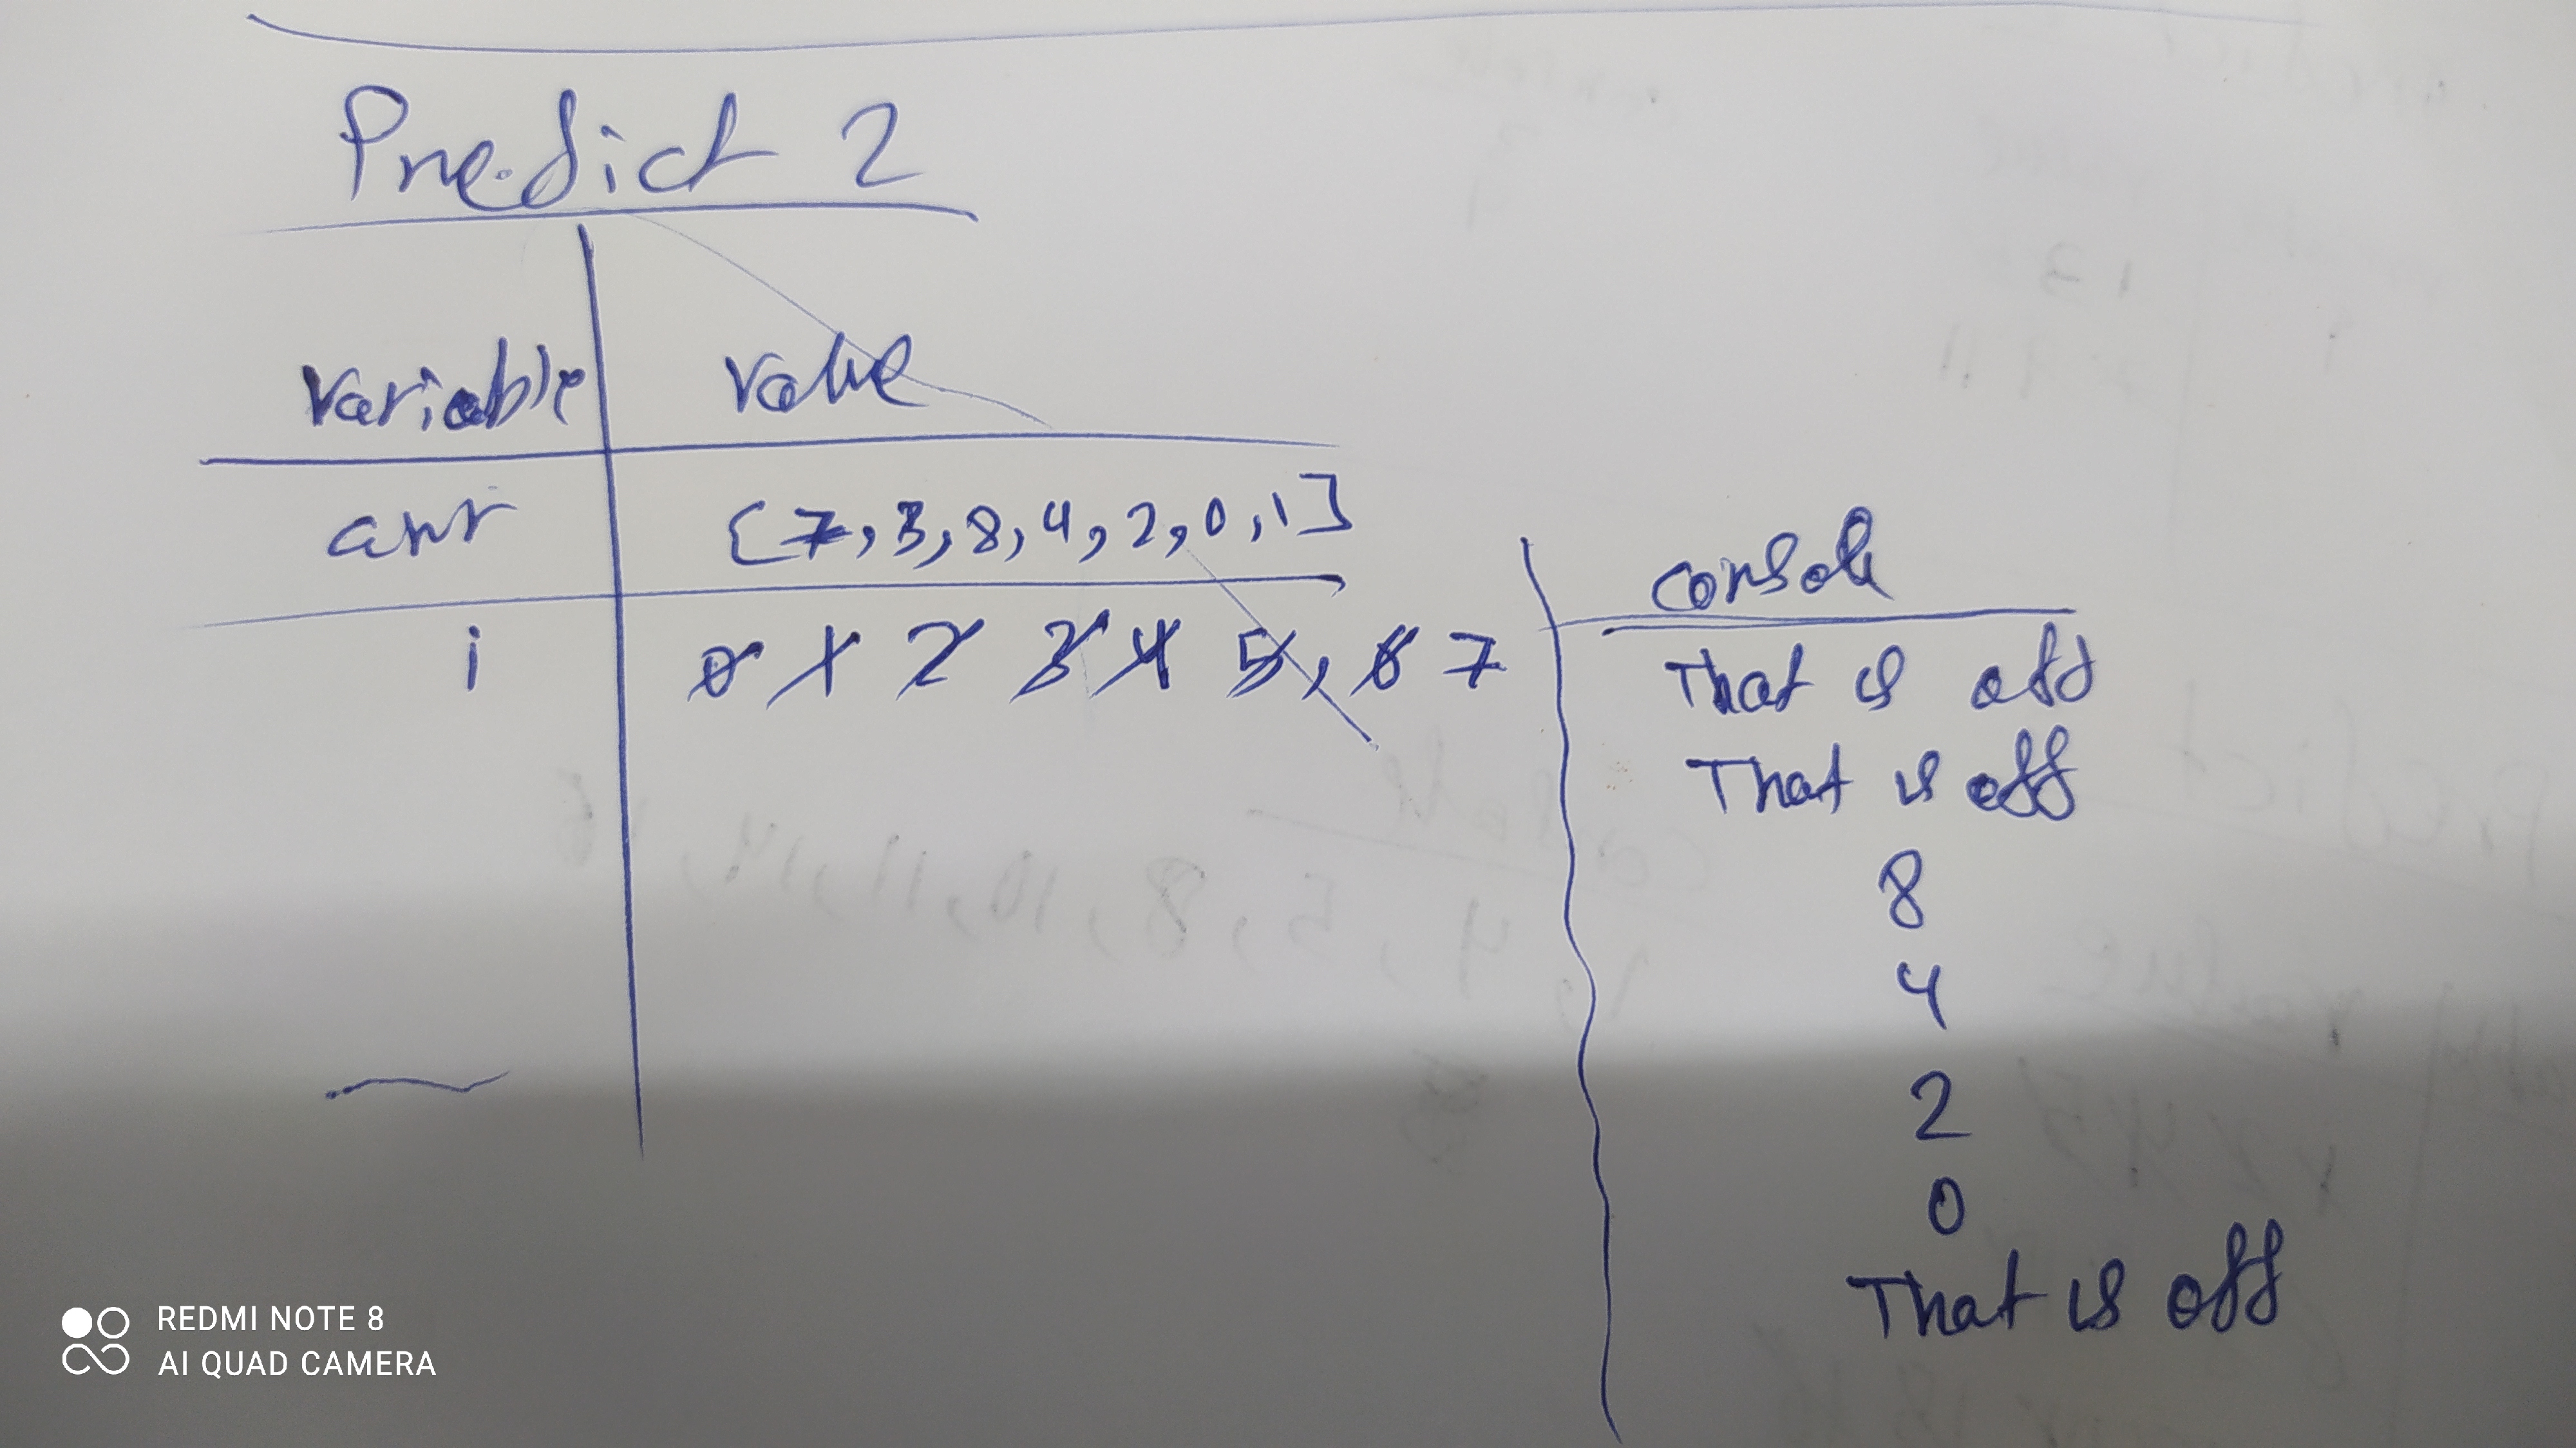 Predict 2
variable value
arr [7, 3, 8, 4, 2, 0, 1]
i 0 1 2 3 4 5, 6 7
console
That is odd
That is odd
8
4
2
0
That is odd
REDMI NOTE 8
AI QUAD CAMERA